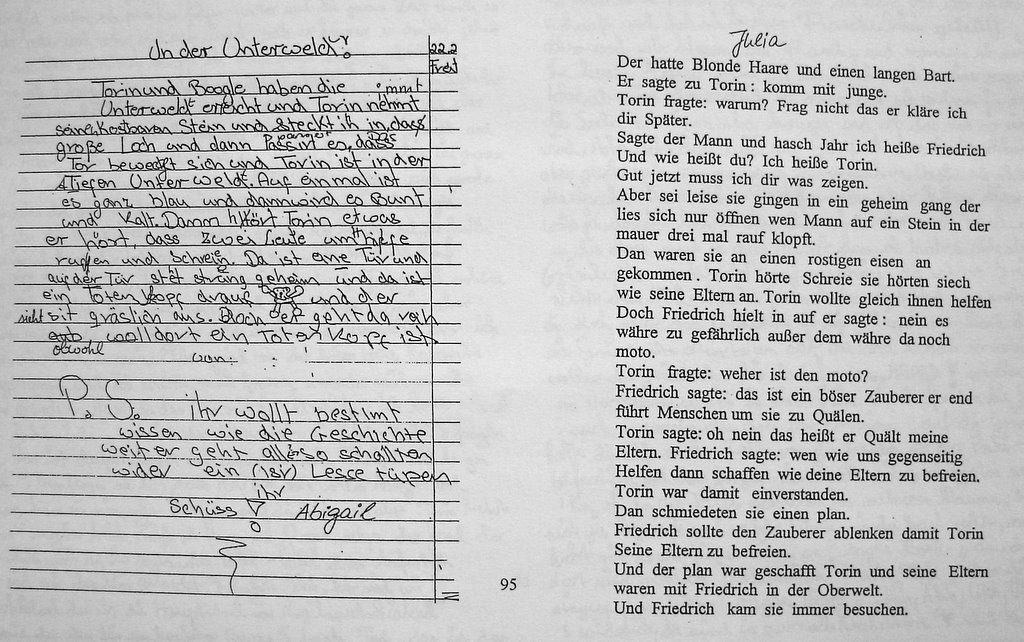 In der Unterwelt?
22.2
Torin und Boogle haben die immt
Unterwelt erreicht und Torin nehmt
seinen kostbaren Stein und steckt ih in das
große Loch und dann Passirt en, dass
Tor beweegt sich und Torin ist in der
Tiefen Unterweldt. Auf einmal ist
es ganz blau und dann wird es Bunt
und Kalt. Damm hört Torin etwas
er hört, dass zwei Leute um hilfe
ruffen und Schrein. Da ist eine Tür und
auf der Tür stet sträng geheim und da ist
ein Totenkopf drauf und der
sieht sit gräslich aus. Bloch er geht da rein
wolldort ein Totenkopf ist
obwohl
P.S. ihr wollt bestimt
wissen wie die Geschichte
weiter geht alléso schallten
wider ein (ihr) Lesce tüpen
ihr
Schüss! Abigail
95
Julia
Der hatte Blonde Haare und einen langen Bart.
Er sagte zu Torin : komm mit junge.
Torin fragte: warum? Frag nicht das er kläre ich
dir Später.
Sagte der Mann und hasch Jahr ich heiße Friedrich
Und wie heißt du? Ich heiße Torin.
Gut jetzt muss ich dir was zeigen.
Aber sei leise sie gingen in ein geheim gang der
lies sich nur öffnen wen Mann auf ein Stein in der
mauer drei mal rauf klopft.
Dan waren sie an einen rostigen eisen an
gekommen . Torin hörte Schreie sie hörten siech
wie seine Eltern an. Torin wollte gleich ihnen helfen
Doch Friedrich hielt in auf er sagte : nein es
währe zu gefährlich außer dem währe da noch
moto.
Torin fragte: weher ist den moto?
Friedrich sagte: das ist ein böser Zauberer er end
führt Menschen um sie zu Quälen.
Torin sagte: oh nein das heißt er Quält meine
Eltern. Friedrich sagte: wen wie uns gegenseitig
Helfen dann schaffen wie deine Eltern zu befreien.
Torin war damit einverstanden.
Dan schmiedeten sie einen plan.
Friedrich sollte den Zauberer ablenken damit Torin
Seine Eltern zu befreien.
Und der plan war geschafft Torin und seine Eltern
waren mit Friedrich in der Oberwelt.
Und Friedrich kam sie immer besuchen.